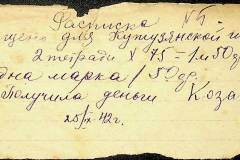 Расписка №5.
щено для Кутузянской ш
2 тетради х 75 = 1 м 50
дна марка / 50
Получила деньги Коза
25/X 42г.